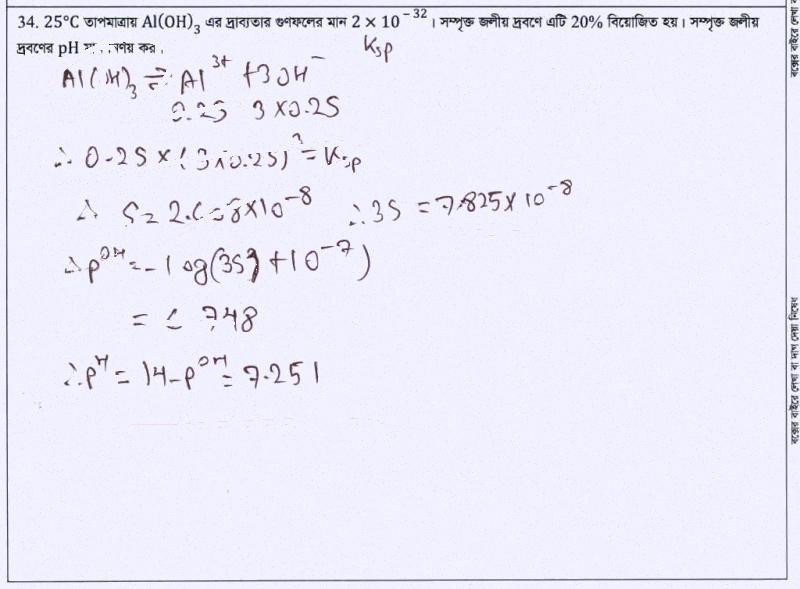 34. 25°C তাপমাত্রায় Al(OH)₃ এর দ্রাব্যতার গুণফলের মান 2 × 10⁻³²। সম্পৃক্ত জলীয় দ্রবণে এটি 20% বিয়োজিত হয়। সম্পৃক্ত জলীয়
দ্রবণের pH কর।
Ksp
Al(OH)₃ ⇌ Al³⁺ + 3OH⁻
0.2S 3×0.2S
∴ 0.2S × (3×0.2S)³ = Ksp
∴ 3S = 7.825×10⁻⁸
∴ pᴼᴴ = -log(3S + 10⁻⁷)
= 748
∴ pᴴ = 14-pᴼᴴ = 7.251
বক্সের বাইরে লেখা বা দাগ দেয়া নিষেধ